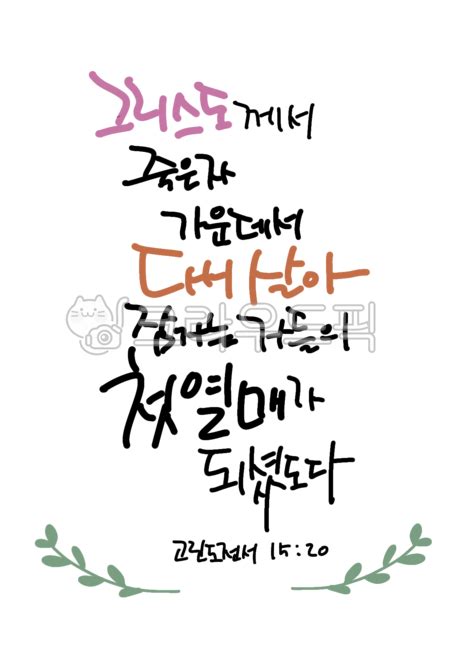 그리스도께서
죽은자
가운데서
다시 살아
잠자는 자들의
첫 열매가
되셨도다
고린도전서 15:20
크라우드픽